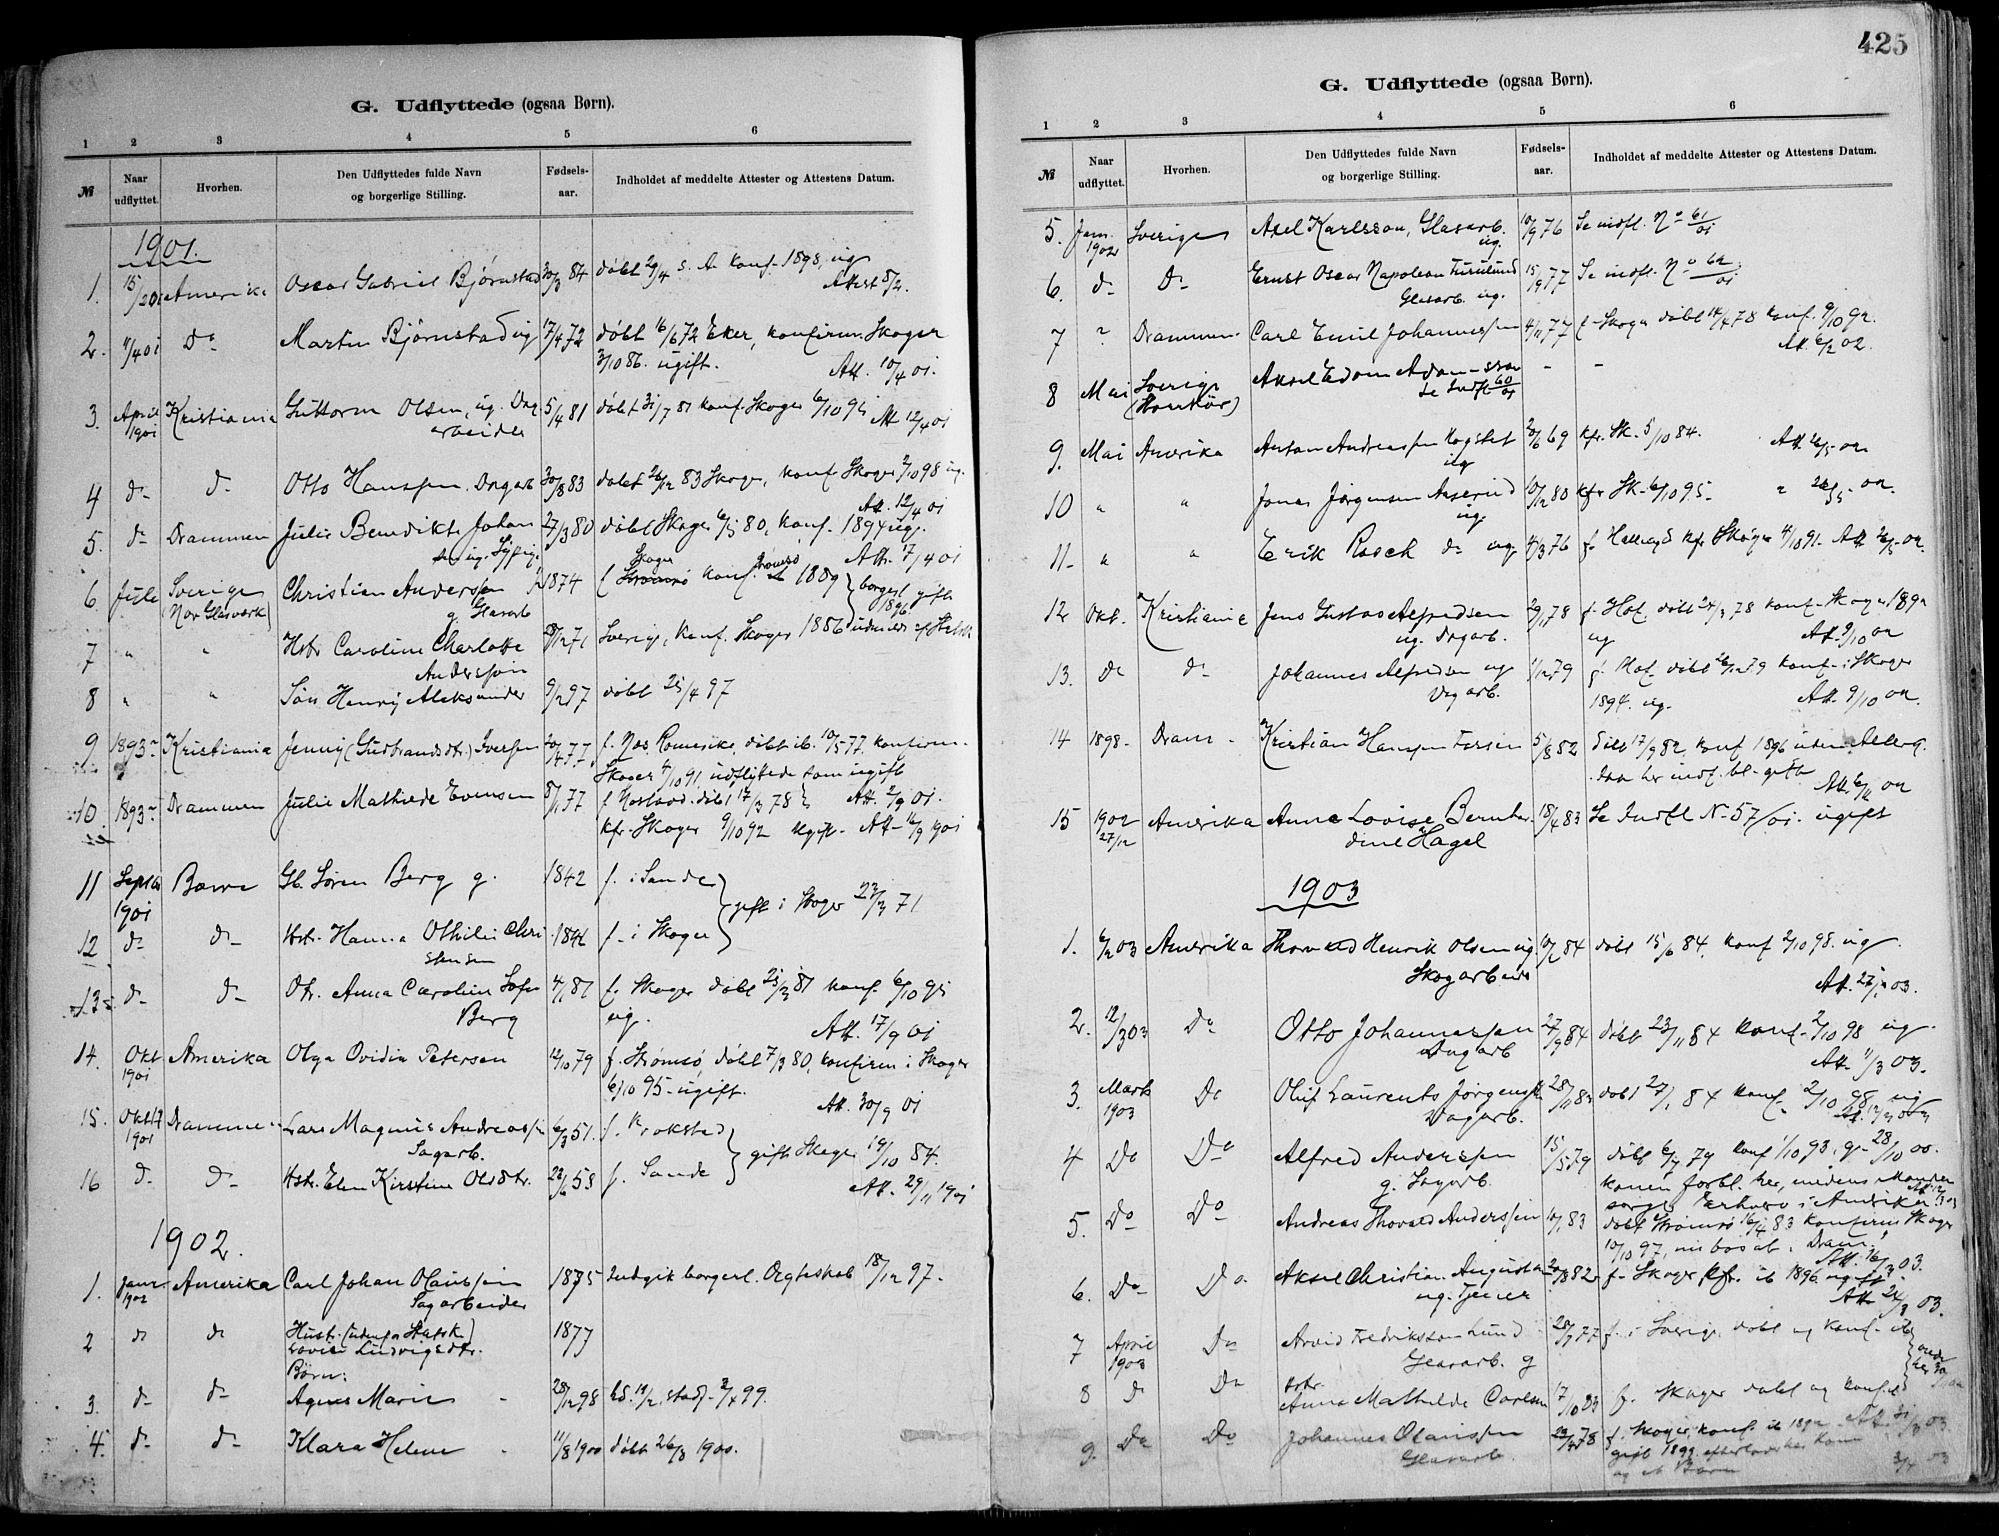 G. Udflyttede (ogsaa Børn).
1 2 3 4 5 6
№ Naar udflyttet. Hvorhen. Den Udflyttedes fulde Navn og borgerlige Stilling. Fødsels-aar. Indholdet af meddelte Attester og Attestens Datum.
1901.
1. 15/2 01 Amerika Oscar Gabriel Bjørnstad 30/3 84 døbt 29/4 s. A. konf. 1898, ug
Attest 8/2.
2. 11/4 01 Do Martin Bjørnstad ug 17/4 72 døbt 16/6 72 Eker, konfirm. Skoger
3/10 86. ugift. Att. 10/4 01.
3. April Kristiania Guttorm Olsen, ug. Dag 5/4 81 døbt 31/7 81 konf. Skoger 6/10 95 Att 12/4 01
1901 arbeider
4 d- d- Otto Hanssen. Dagarb 30/8 83 døbt 26/12 83 Skoger, konf. Skoger 2/10 98 ug.
Att. 12/4 01
5. d- Drammen Julie Benedikte Johan 27/3 80 døbt Skoger 6/5 80, konf. 1894 ug.
sen ug. Sypig. Att. 17/4 01
6. Julie Sverige Christian Anderssen 1874 f. Skoger konf. Strømsø 1889 borgerl. gifte
(Nor Glasværk) g. Glasarb 1896
7 " " Hstr Caroline Charlotte 28/12 71 Sverige, konf. Skoger 1886 udmeldt af Statsk
Anderssen
8 " " Søn Henrij Aleksander 9/2 97 døbt 25/4 97
9 1893 Kristiania Jenny (Gudbrandsdtr.) Iversen 20/4 77 f. Nes Romerike, døbt ib. 10/5 77, konfirm.
Skoger 4/10 91, udflyttede som ugift
10. 1893 Drammen Julie Mathilde Evensen 8/1 77 f. døbt 17/3 78 Att. 2/9 01.
kfr. Skoger 9/10 92 Ugift - Att - 16/9 1901
11 Septbr Gb. Søren Berg g. 1842 f. i Sande
1901 gift i Skoger 23/3 71
12 d- d- Hstr. Hanna Othilie Chri 1844 f. i Skoger
stensen
13 d- d- Dtr. Anna Caroline Sofie 4/1 81 f. Skoger døbt 25/3 81 konf. 6/10 95
Berg ug. Att. 17/9 01
14. Okt Amerika Olga Ovidia Petersen 12/10 79 f. Strømsø, døbt 7/3 80, konfirm i Skoger
1901 6/10 95 - ugift.
Att. 30/9 01
15. Oktbr Drammen Lars Magnus Andreassen 6/3 51. f. Krokstad
1901 Sagarb. gift Skoger 19/10 84.
16 d- d- Hstr. Elen Kirstine Olsdtr. 22/6 58 f. Sande
Att. 29/11 1901
1902.
1. Janr Amerika Carl Johan Olaussen 1875 Indgik borgerl. Ægteskab 18/12 97.
1902 Sagarbeider
2 do do Hustr. (udenfor Statsk) 1877
Lovise Ludvigsdtr.
Børn:
3. d- d- Agnes Marie - 28/12 98 stadf. 2/4 99.
4. d- d- Klara Helene - 11/8 1900 døbt 26/8 1900.
425
G. Udflyttede (ogsaa Børn).
1 2 3 4 5 6
№ Naar udflyttet. Hvorhen. Den Udflyttedes fulde Navn og borgerlige Stilling. Fødsels-aar. Indholdet af meddelte Attester og Attestens Datum.
5. Jan. Sverige Axel Karlsson, Glasarb. 10/9 76 Se indfl. No 61/01
1902 ug.
6. d- D- Ernst Oscar Napoleon Furulund 15/9 77 Se indfl. No 62/01
Glasarb. ug.
7 " Drammen Carl Emil Johannessen 4/11 77 f. Skoger døbt 14/4 78 konf. 9/10 92.
Att. 6/2 02.
8 Mai Sverige Aksel Edom Adamsson - -
se Indfl 60/01
9. Mai Amerika Anton Andreassen Hogstet 20/6 69 kfr. Sk. 5/10 84. Att. 26/5 02
ug
10 " " Jonas Jørgensen Aaserud 10/12 80 kfr Sk. 6/10 95. " 26/5 02.
ug.
11 " " Erik Rosch do ug 4/3 76 kfr Skoger 4/1891. Att 26/5 02.
12 Okt. Kristiania Jens Gustav Alfredsen 29/1 78 f. Hof. døbt 24/3 78 konf. Skoger 1892
ug. Dagarb. ug Att. 9/10 02
13. do d- Johannes Alfredsen ug 1/12 79 f. Hof. døbt 26/12 79 konf. i Skoger
Dagarb. 1894. ug. Att. 9/10 02.
14 1898 Dram - Kristian Hansen 5/8 82 døbt 17/9 82 konf 1896
daa her indf. bl. gifte
15 1902 Amerika Anna Lovise Bernhar- 18/4 83 Se Indfl N- 57/01. ugift
27/12 dine Hagel
1903
1. 6/2 03 Amerika Thorvald Henrik Olsen ug. 10/2 84 døbt 15/6 84, konf 2/10 98. ug.
Skogarbeider Att. 27/1 03.
2. 12/3 03 Do Otto Johannessen 27/9 84 døbt 23/11 84 konf. 2/10 98 ug.
Dagarb Att. 11/3 03.
3. Marts Do Oluf Laurents Jørgensen 28/11 83 døbt 27/1 84 konf. 2/10 98 ug
1903 Dagarb.
4 Do Do Alfred Anderssen 15/5 79 døbt 6/7 79 konf 1/10 93. g. 28/10 00.
g. Sagarb. konen forbl. her, medens Manden
søger Erhverv i Amerika
5. Do Do Andreas Thorvald Anderssen 10/1 83 døbt Strømsø 16/4 83 konfirm Skoger
10/10 97, nu bosat i Dram. Att. 16/3 03.
6. Do Do Aksel Christian Augustsen 20/8 82 f. Skoger kfr. ib 1896 ugift
ug. Tjener Att. 24/3 03.
7 April Do Arvid Fredriksson Lund 20/7 77 f. i Sverige døbt og konf. ib
1903 Glasarb. g
8 D Do Hstr. Anna Mathilde Carlsen 17/10 83 f. Skoger døbt og konf. ib
9. Do Do Johannes Olaussen 23/4 78 f. Skoger, konf. ib 1892 Att. 31/3 03
Glasarb. gift 1899. efterlader her Kone
og et Barn 3/4 03